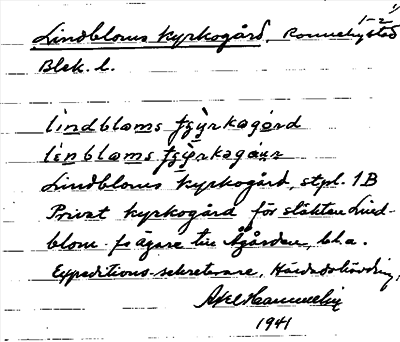 1-2
Lindbloms kyrkogård, Ronneby stad
Blek. l.
lindbloms
lenbloms
Lindbloms kyrkogård, stpl. 1B
Privat kyrkogård för släkten Lind-
blom f. ägare till Ågården, bl.a.
Expeditions-sekreterare, Häradshövding,
Axel
1941